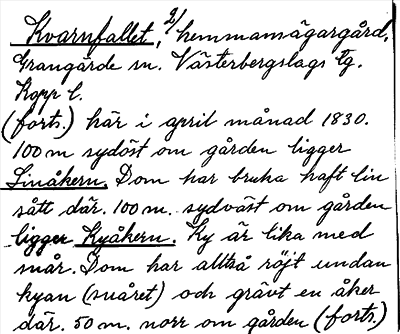 Kvarnfallet, 2/ hemmansägargård,
Grangärde sn. Västerbergslags tg.
Kopp. l.
(forts.) här i april månad 1830.
100 m sydöst om gården ligger
Linåkern. Dom har bruka haft lin
sått där. 100 m. sydväst om gården
ligger Kyåkern. Ky är lika med
snår. Dom har alltså röjt undan
kyan (snåret) och grävt en åker
där. 50 m. norr om gården (forts.)